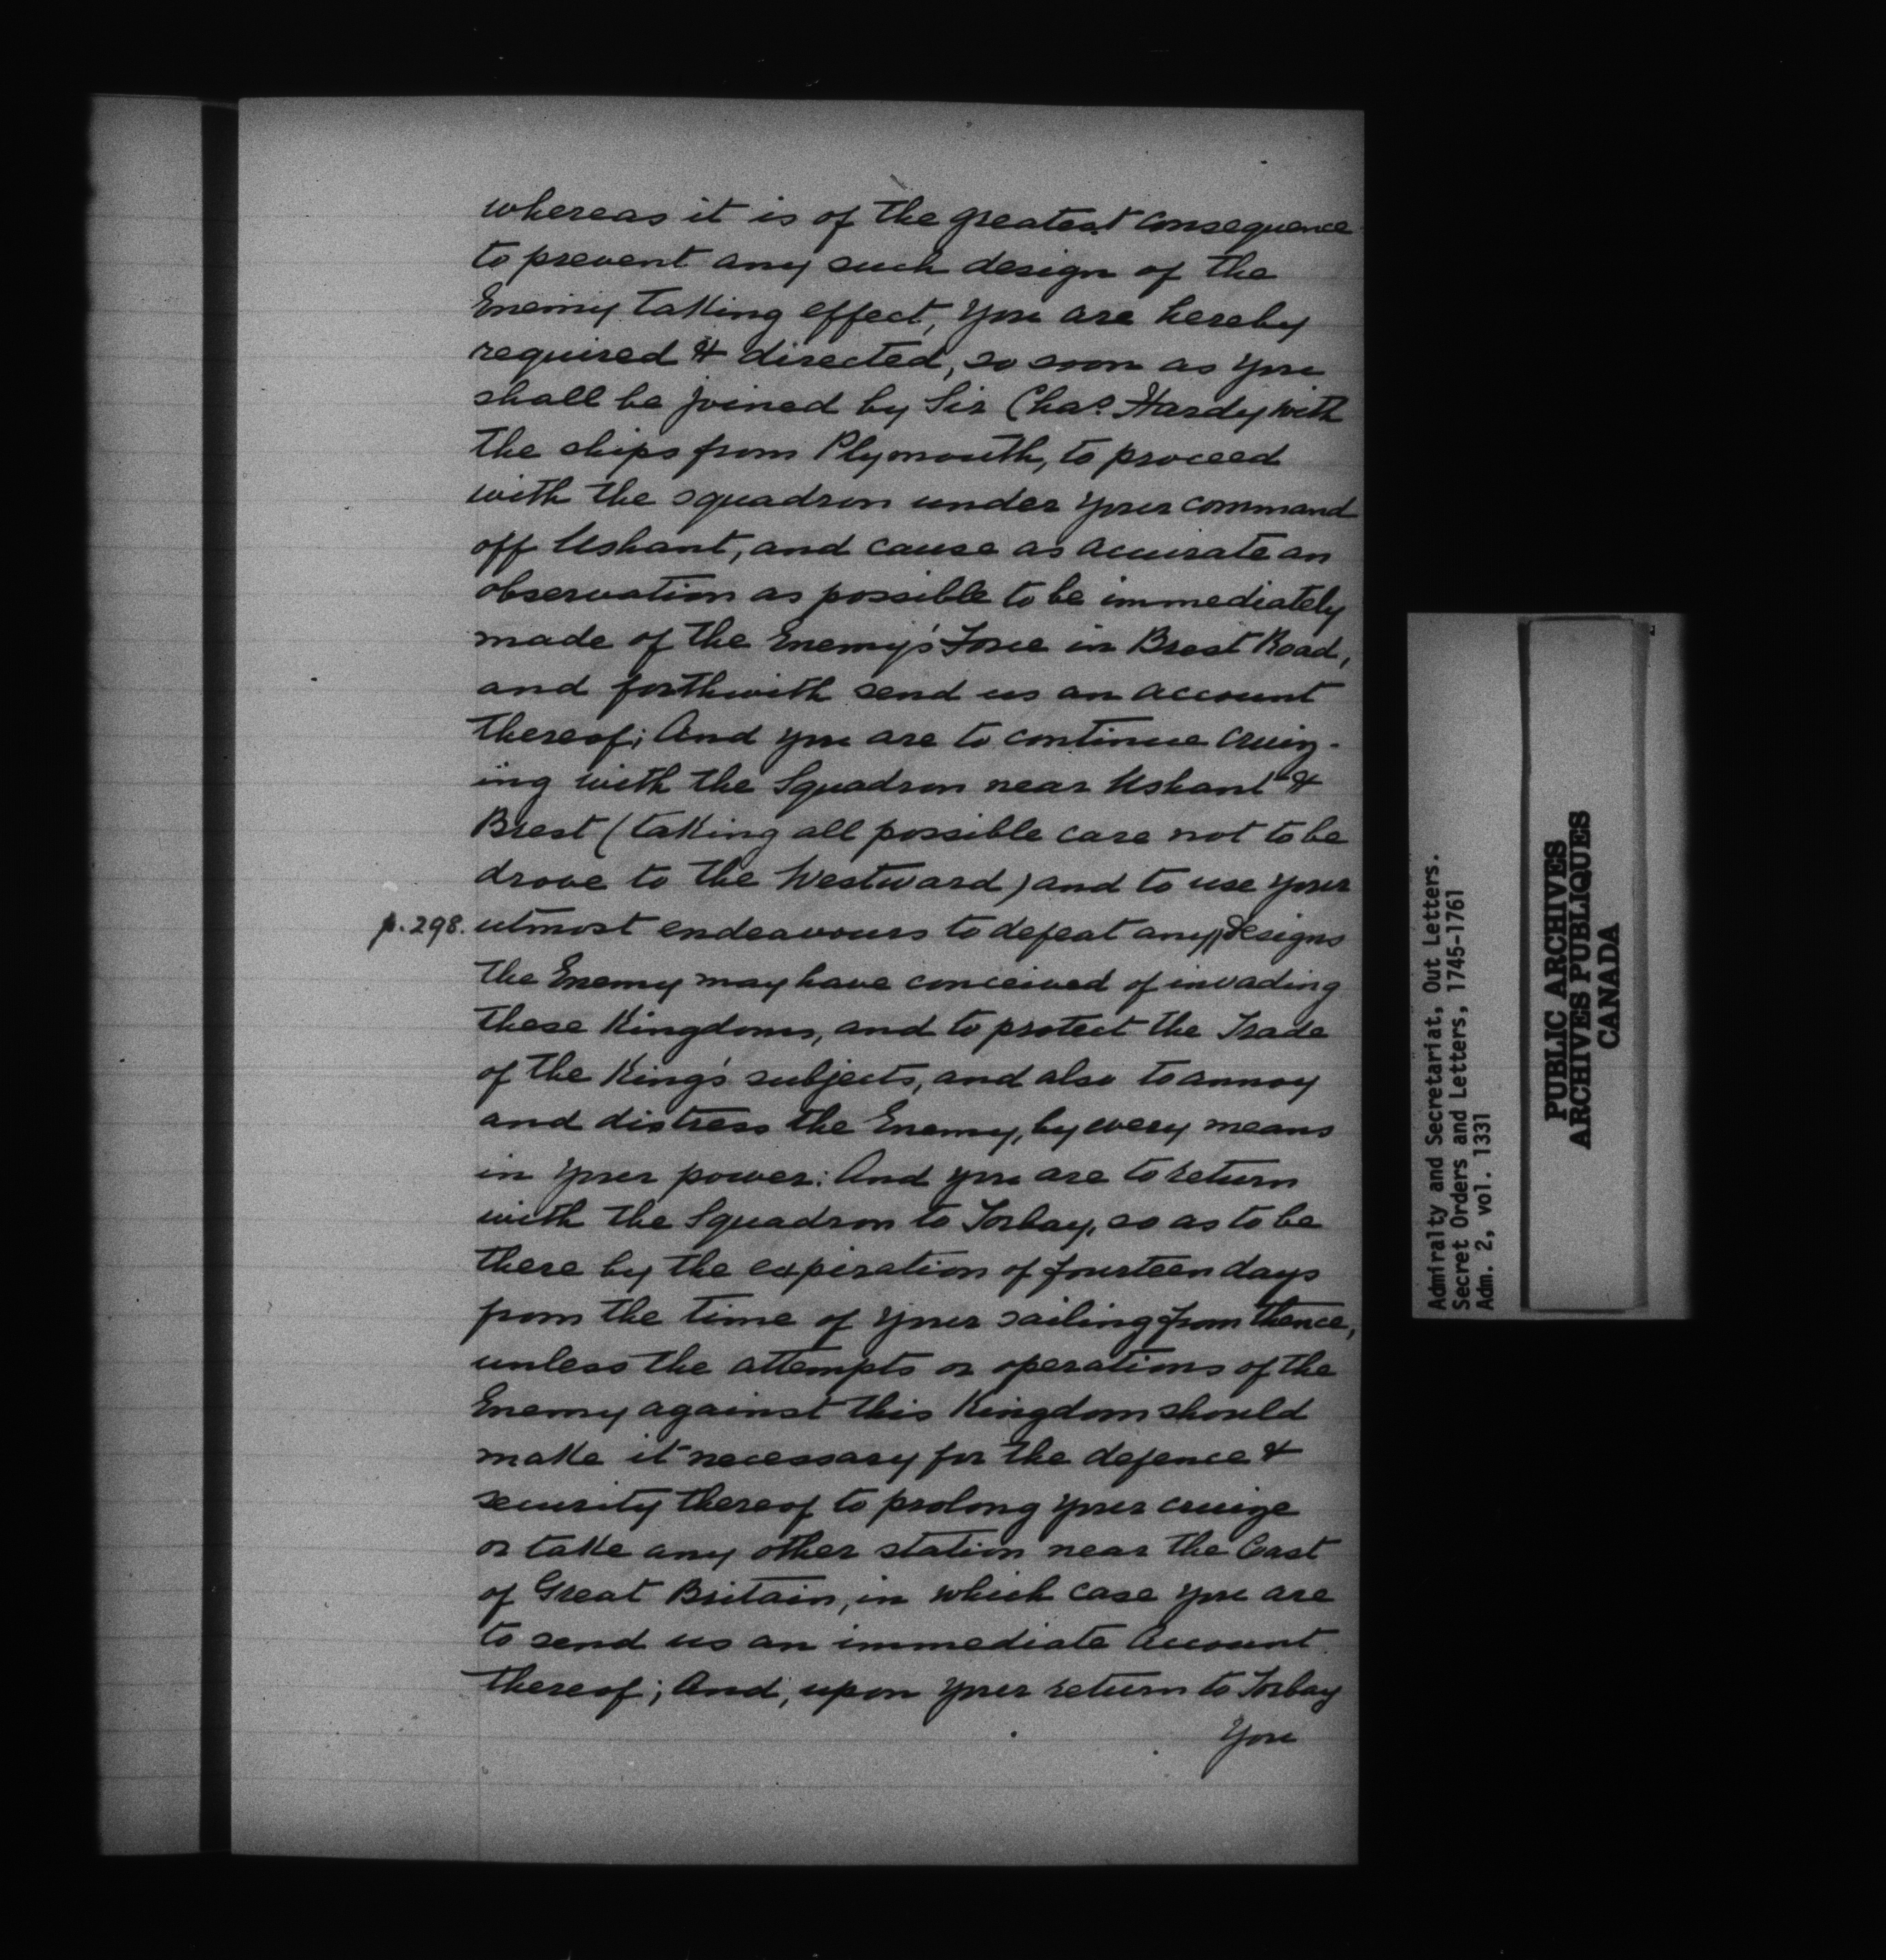 whereas it is of the greatest consequence
to prevent any such design of the
Enemy taking effect, you are hereby
required & directed, so soon as you
shall be joined by Sir Chas. Hardy with
the ships from Plymouth, to proceed
with the squadron under your command
off Ushant, and cause as accurate an
observation as possible to be immediately
made of the Enemy's Force in Brest Road,
and forthwith send us an account
thereof; And you are to continue cruiz-
ing with the Squadron near Ushant &
Brest (taking all possible care not to be
drove to the Westward) and to use your
p. 298. utmost endeavours to defeat any//designs
the Enemy may have conceived of invading
these Kingdoms, and to protect the Trade
of the King's subjects, and also to annoy
and distress the Enemy, by every means
in your power: And you are to return
with the Squadron to Torbay, so as to be
there by the expiration of fourteen days
from the time of your sailing from thence,
unless the attempts or operations of the
Enemy against this Kingdom should
make it necessary for the defence &
security thereof to prolong your cruize
or take any other station near the Coast
of Great Britain, in which case you are
to send us an immediate Account
thereof; And, upon your return to Torbay
You
Admiralty and Secretariat, Out Letters.
Secret Orders and Letters, 1745-1761
Adm. 2, vol. 1331
PUBLIC ARCHIVES
ARCHIVES PUBLIQUES
CANADA